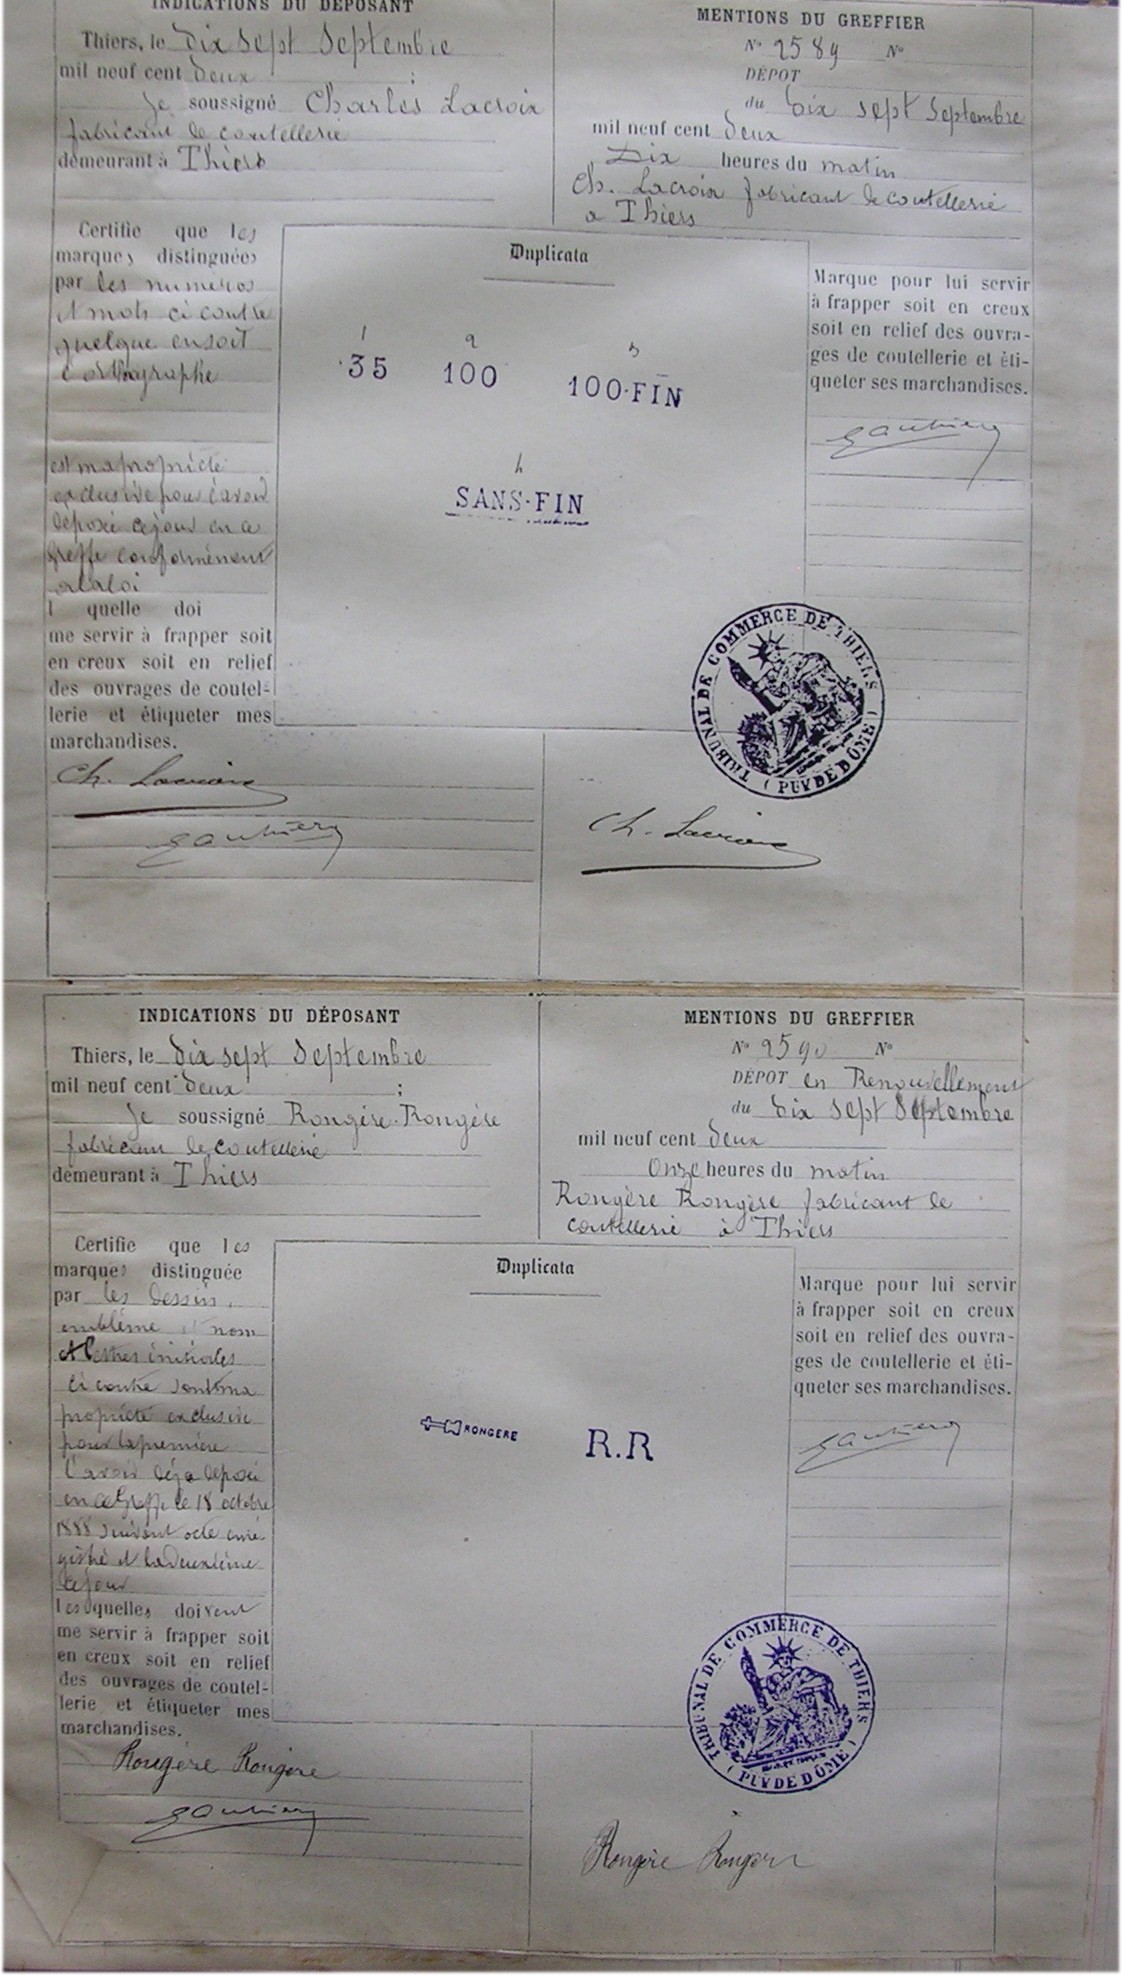 INDICATIONS DU DÉPOSANT
Thiers, le Dix sept Septembre
mil neuf cent deux ;
Je soussigné Charles Lacroix
fabricant de coutellerie
demeurant à Thiers
Certifie que les
marques distinguées
par les numeros
et mots ci contre
quelque en soit
l'orthographe
est ma propriété
exclusive pour l'avoir
déposée ce jour en ce
Greffe conformément
a la loi
l quelle doi
me servir à frapper soit
en creux soit en relief
des ouvrages de coutel-
lerie et étiqueter mes
marchandises.
Ch. Lacroix
Gauthier
MENTIONS DU GREFFIER
N° 2589 N°
DÉPOT
du Dix sept Septembre
mil neuf cent deux
Dix heures du matin
Ch. Lacroix fabricant de coutellerie
a Thiers
Duplicata
1 2 3
35 100 100·FIN
4
SANS·FIN
Marque pour lui servir
à frapper soit en creux
soit en relief des ouvra-
ges de coutellerie et éti-
queter ses marchandises.
Gauthier
TRIBUNAL DE COMMERCE DE THIERS
( PUY DE DÔME )
Ch. Lacroix
INDICATIONS DU DÉPOSANT
Thiers, le Dix sept Septembre
mil neuf cent deux ;
Je soussigné Rongère-Rongère
fabricant de coutellerie
demeurant à Thiers
Certifie que les
marques distinguée
par les dessin,
emblême et nom
et lettres initiales
ci contre sont ma
propriété exclusive
pour la première
l'avoir déja déposé
en ce Greffe le 18 octobre
1888 suivant acte enre
gistré et la deuxième
ce jour
lesquelles doivent
me servir à frapper soit
en creux soit en relief
des ouvrages de coutel-
lerie et étiqueter mes
marchandises.
Rongère Rongère
Gauthier
MENTIONS DU GREFFIER
N° 2590 N°
DÉPOT en Renouvellement
du Dix sept Septembre
mil neuf cent deux
Onze heures du matin
Rongère Rongère fabricant de
coutellerie à Thiers
Duplicata
RONGERE R.R
Marque pour lui servir
à frapper soit en creux
soit en relief des ouvra-
ges de coutellerie et éti-
queter ses marchandises.
Gauthier
TRIBUNAL DE COMMERCE DE THIERS
( PUY DE DÔME )
Rongère Rongère